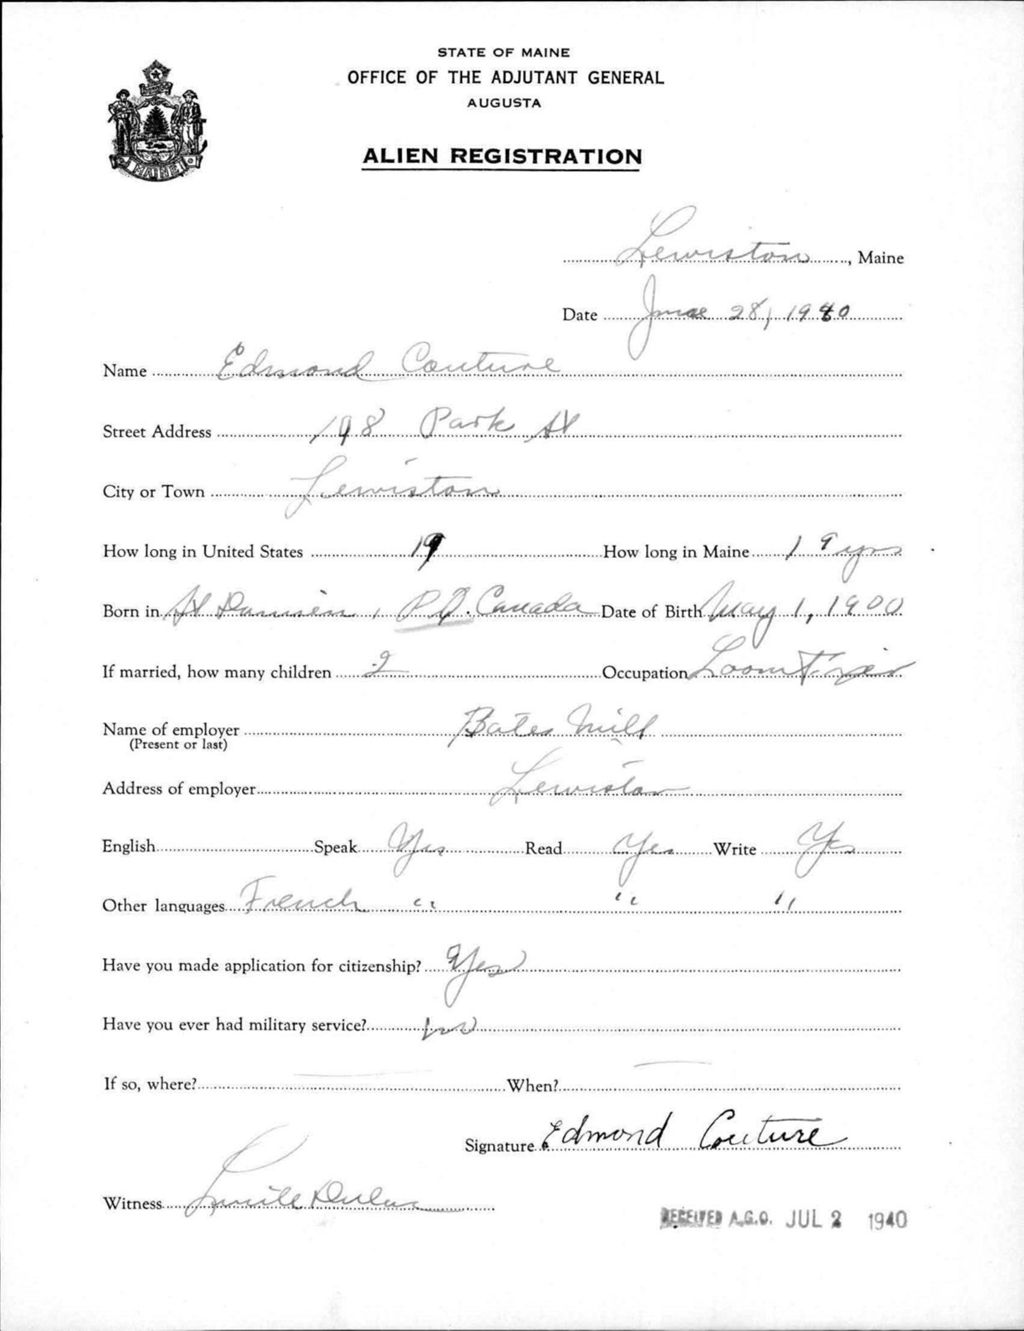 STATE OF MAINE
OFFICE OF THE ADJUTANT GENERAL
AUGUSTA
ALIEN REGISTRATION
MAINE
Lewiston, Maine
Date June 28, 1940
Name Edmond Couture
Street Address 198 Park St
City or Town Lewiston
How long in United States 19 How long in Maine 19 yrs
Born in St Damien, P.Q. Canada Date of Birth May 1, 1900
If married, how many children 2 Occupation Loom Fixer
Name of employer Bates Mill
(Present or last)
Address of employer Lewiston
English Speak Yes Read Yes Write Yes
Other languages French " " "
Have you made application for citizenship? Yes
Have you ever had military service? no
If so, where? — When? —
Signature Edmond Couture
Witness Lucille
RECEIVED A.G.O. JUL 2 1940